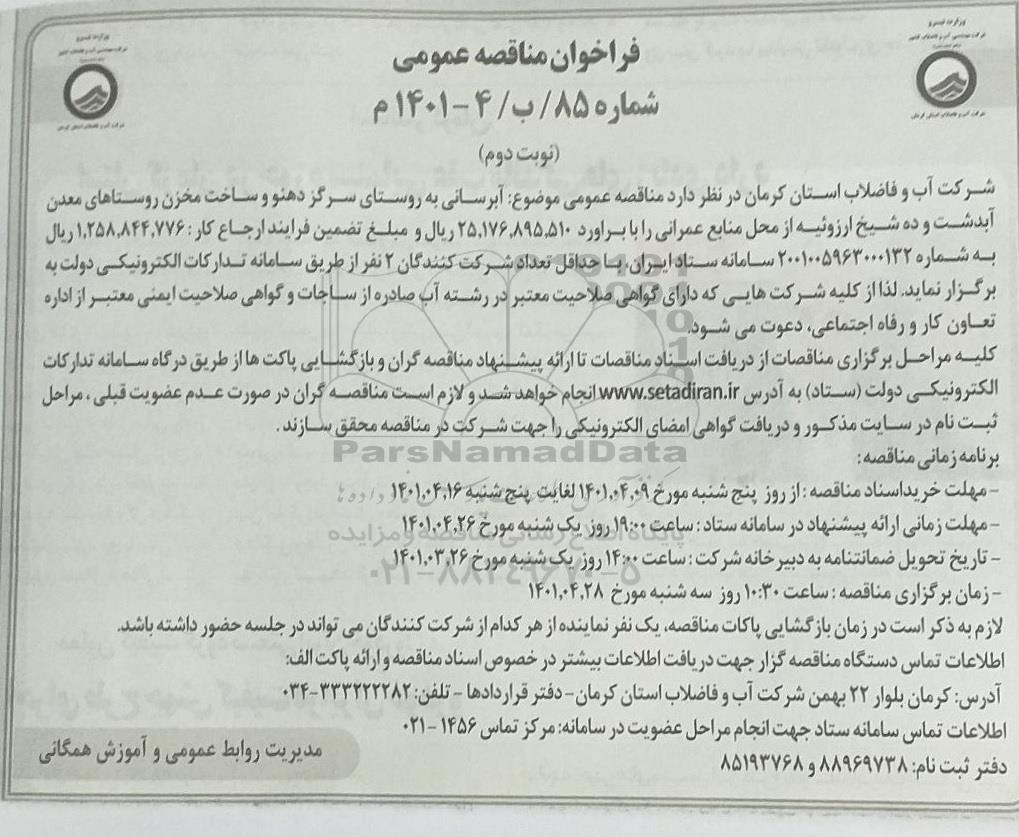 وزارت نیرو
شرکت مهندسی آب و فاضلاب کشور
شرکت آب و فاضلاب استان کرمان
وزارت نیرو
شرکت مهندسی آب و فاضلاب کشور
شرکت آب و فاضلاب استان کرمان
فراخوان مناقصه عمومی
شماره ۸۵/ ب/ ۴ -۱۴۰۱ م
(نوبت دوم)
شرکت آب و فاضلاب استان کرمان در نظر دارد مناقصه عمومی موضوع: آبرسانی به روستای سرگز دهنو و ساخت مخزن روستاهای معدن
آبدشت و ده شیخ ارزوئیه از محل منابع عمرانی را با براورد ۲۵,۱۷۶,۸۹۵,۵۱۰ ریال و مبلغ تضمین فرایند ارجاع کار: ۱,۲۵۸,۸۴۴,۷۷۶ ریال
به شماره ۲۰۰۱۰۰۵۹۶۳۰۰۰۱۳۲ سامانه ستاد ایران، با حداقل تعداد شرکت کنندگان ۲ نفر از طریق سامانه تدارکات الکترونیکی دولت به
برگزار نماید. لذا از کلیه شرکت هایی که دارای گواهی صلاحیت معتبر در رشته آب صادره از ساجات و گواهی صلاحیت ایمنی معتبر از اداره
تعاون کار و رفاه اجتماعی، دعوت می شود.
کلیه مراحل برگزاری مناقصات از دریافت اسناد مناقصات تا ارائه پیشنهاد مناقصه گران و بازگشایی پاکت ها از طریق درگاه سامانه تدارکات
الکترونیکی دولت (ستاد) به آدرس www.setadiran.ir انجام خواهد شد و لازم است مناقصه گران در صورت عدم عضویت قبلی، مراحل
ثبت نام در سایت مذکور و دریافت گواهی امضای الکترونیکی را جهت شرکت در مناقصه محقق سازند.
ParsNamadData
برنامه زمانی مناقصه:
- مهلت خرید اسناد مناقصه: از روز پنج شنبه مورخ ۱۴۰۱,۰۴,۰۹ لغایت پنج شنبه ۱۴۰۱,۰۴,۱۶
- مهلت زمانی ارائه پیشنهاد در سامانه ستاد: ساعت ۱۹:۰۰ روز یک شنبه مورخ ۱۴۰۱,۰۴,۲۶
پایگاه اطلاع رسانی مناقصه و مزایده
- تاریخ تحویل ضمانتنامه به دبیرخانه شرکت: ساعت ۱۴:۰۰ روز یک شنبه مورخ ۱۴۰۱,۰۳,۲۶
۰۲۱-۸۸۳۴۹۶۷۰-۵
- زمان برگزاری مناقصه: ساعت ۱۰:۳۰ روز سه شنبه مورخ ۱۴۰۱,۰۴,۲۸
لازم به ذکر است در زمان بازگشایی پاکات مناقصه، یک نفر نماینده از هر کدام از شرکت کنندگان می تواند در جلسه حضور داشته باشد.
اطلاعات تماس دستگاه مناقصه گزار جهت دریافت اطلاعات بیشتر در خصوص اسناد مناقصه و ارائه پاکت الف:
آدرس: کرمان بلوار ۲۲ بهمن شرکت آب و فاضلاب استان کرمان- دفتر قراردادها - تلفن: ۳۳۳۲۲۲۲۸۲-۰۳۴
اطلاعات تماس سامانه ستاد جهت انجام مراحل عضویت در سامانه: مرکز تماس ۱۴۵۶ -۰۲۱
دفتر ثبت نام: ۸۸۹۶۹۷۳۸ و ۸۵۱۹۳۷۶۸
مدیریت روابط عمومی و آموزش همگانی